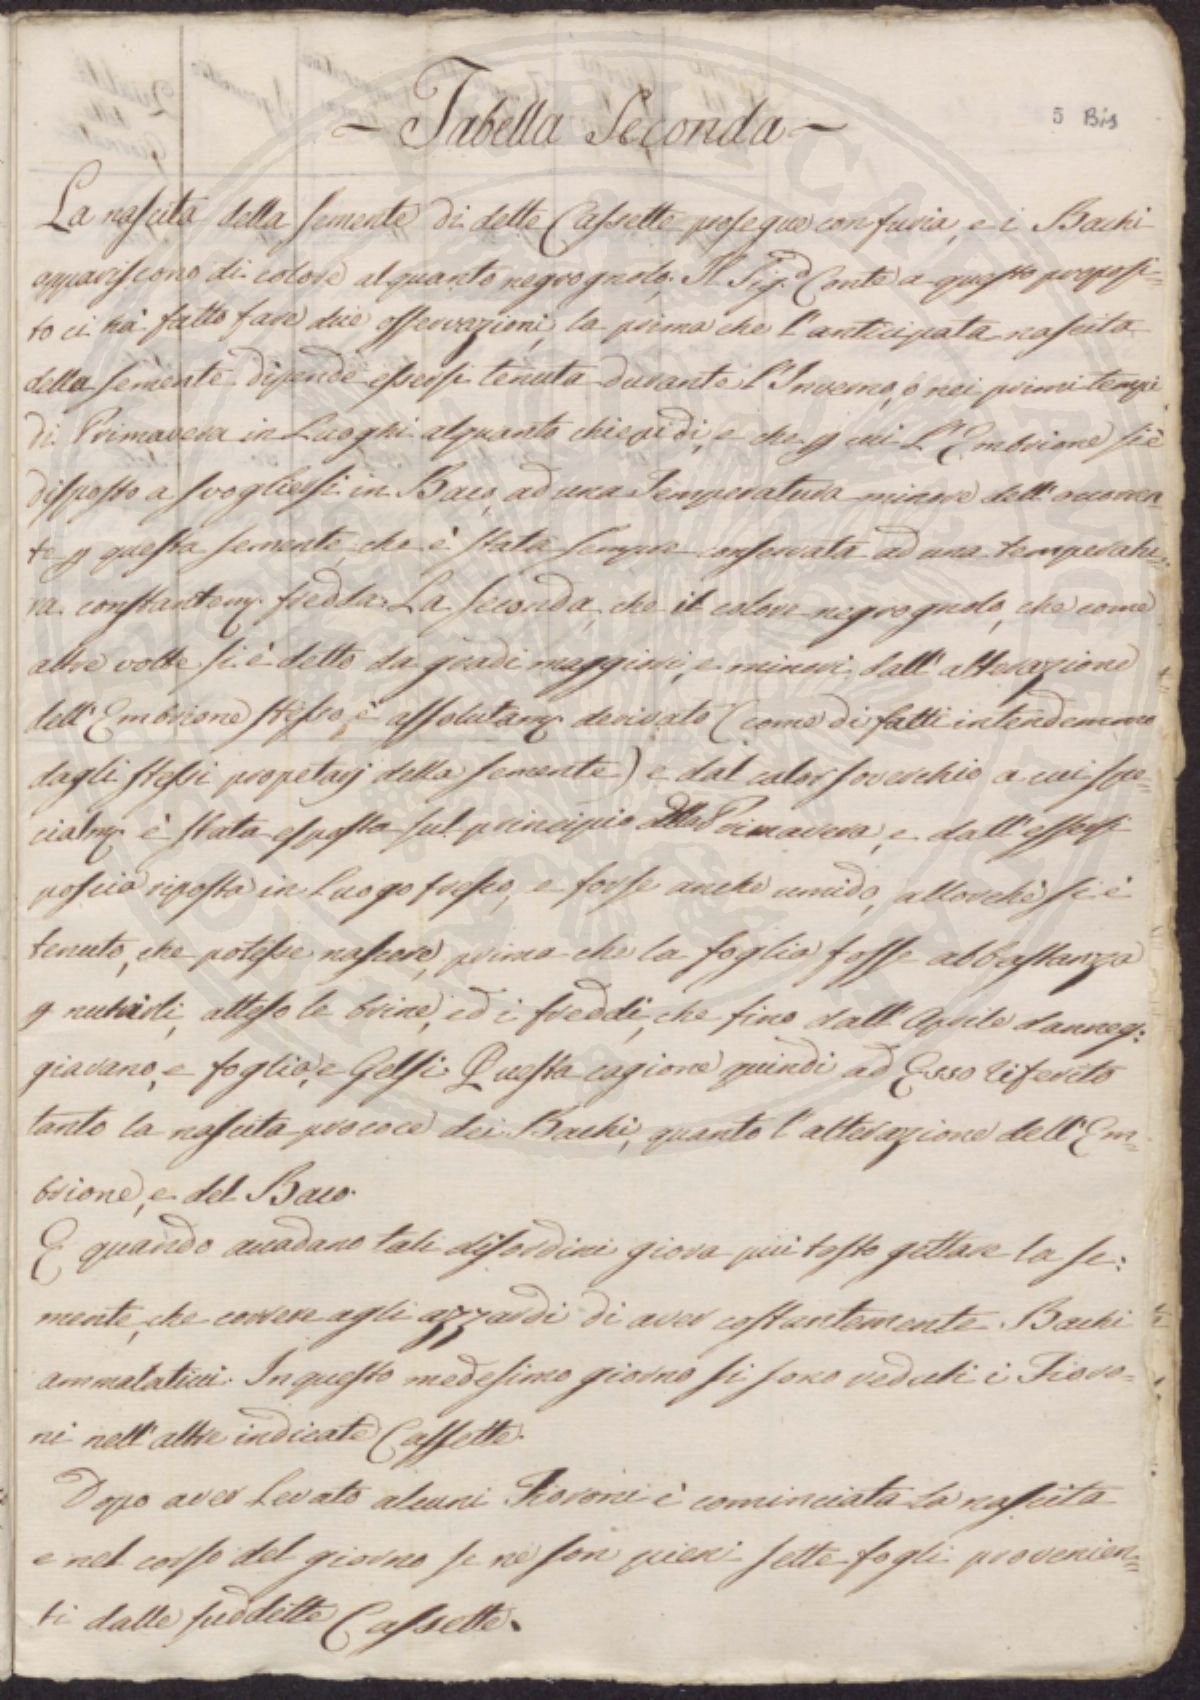 ~ Tabella Seconda ~
5 Bis
La nascita della semente di dette Cassette prosegue con furia, e i Bachi
appariscono di colore alquanto negrognolo. Il Sig.r Conte a questo proposi=
to ci hà fatto fare due osservazioni, la prima che l'anticipata nascita
della semente dipende essersi tenuta durante l'Inverno, o nei primi tempi
di Primavera in Luoghi alquanto chieridi, e che p cui l'Embrione si è
disposto a svogliersi in Baco, ad una Temperatura minore dell'occorren=
te p questa semente, che è stata sempre conservata ad una temperatu=
ra constantem. fredda. La seconda, che il colore negrognolo, che come
altre volte si è detto da gradi maggiori, e minori dall'alterazione
dell'Embrione stesso, è assolutam. derivato (come di fatti intendemmo
dagli stessi propetarj della semente) e dal calor soverchio a cui spe=
cialm. è stata esposta sul principio della Primavera, e dall'essersi
poscia riposta in Luogo fresco, e forse anche umido, allorchè si è
tenuto, che potesse nascere, prima che la foglia fosse abbastanza
p nutrirli, atteso le brine, ed i freddi, che fino dall'Aprile danneg:
giavano, e foglia, e Gelsi. Questa cagione quindi ad Esso riferito
tanto la nascita prococe dei Bachi, quanto l'alterazione dell'Em=
brione, e del Baco.
E quando accadano tali disordini giova più tosto gettare la se:
mente, che correre agli azzardi di aver costantemente Bachi
ammalaticci. In questo medesimo giorno si sono veduti i Fioro=
ni nell'altre indicate Cassette.
Dopo aver levato alcuni Fioroni è cominciata la nascita
e nel corso del giorno se nè son pieni sette fogli provenien=
ti dalle suddette Cassette.